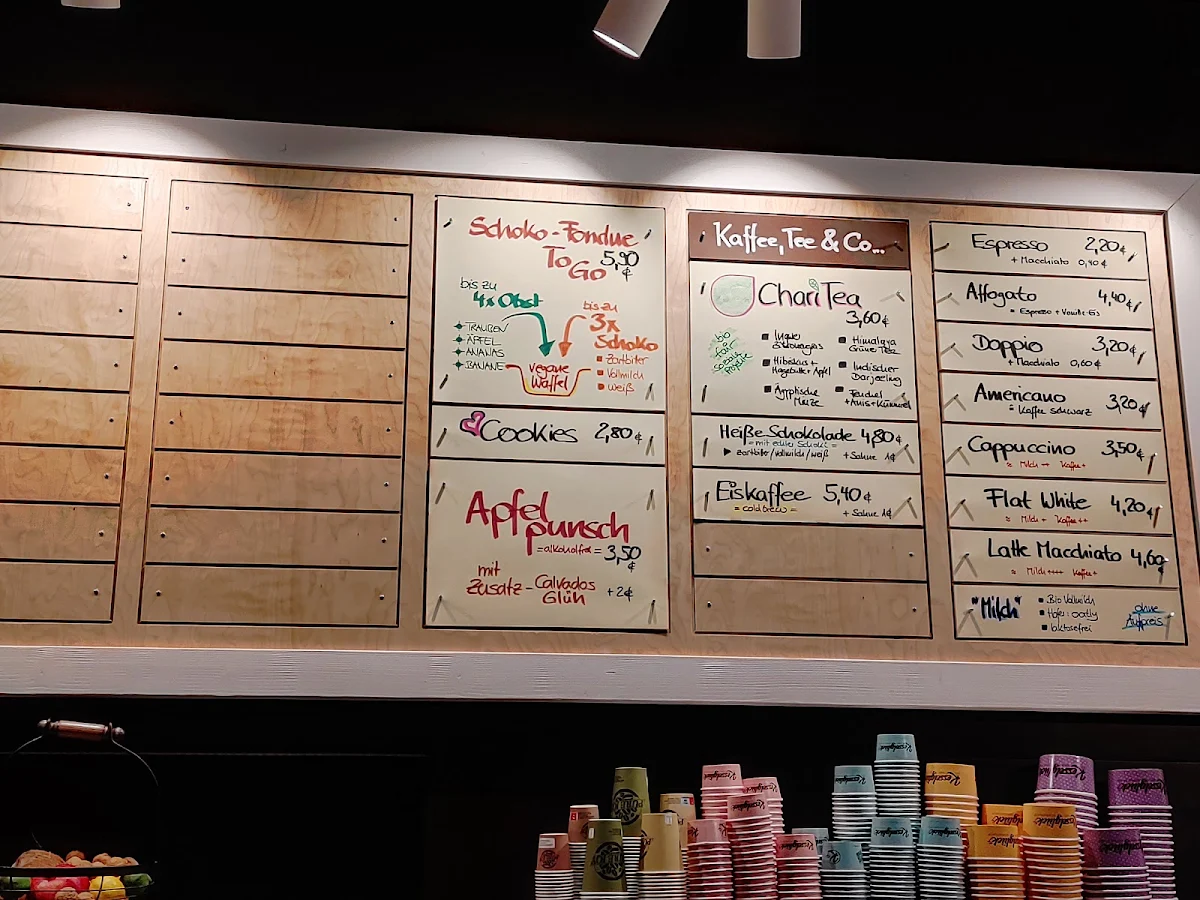 Schoko-Fondue
To Go 5,90 €
bis zu
4x Obst
TRAUBEN
ÄPFEL
ANANAS
BANANE
bis zu
3x
Schoko
Zartbitter
Vollmilch
weiß
vegane
Waffel
Cookies 2,80 €
Apfel
punsch
=alkoholfrei= 3,50 €
mit
Zusatz - Calvados
Glüh +2€
Kaffee, Tee & Co...
ChariTea
3,60 €
bio
fair
soziale
Projekte
Ingwer
Zitronengras
Hibiskus +
Hagebutte + Apfel
Ägyptische
Minze
Himalaya
Grüner Tee
Indischer
Darjeeling
Fenchel
+Anis+Kümmel
Heiße Schokolade 4,80 €
=mit echter Schoki=
zartbitter/vollmilch/weiß +Sahne 1€
Eiskaffee 5,40 €
=cold brew= +Sahne 1€
Espresso 2,20 €
+ Macchiato 0,40 €
Affogato 4,40 €
= Espresso + Vanille-Eis
Doppio 3,20 €
+ Macchiato 0,60 €
Americano 3,20 €
= Kaffee schwarz
Cappuccino 3,50 €
= Milch ++ Kaffee +
Flat White 4,20 €
= Milch + Kaffee ++
Latte Macchiato 4,60 €
= Milch ++++ Kaffee +
"Milch"
Bio Vollmilch
Hafer: oatly
laktosefrei
ohne
Aufpreis
Kesselglück
Kesselglück
Kesselglück
Kesselglück
Kesselglück
Kesselglück
Kesselglück
Kesselglück
Kesselglück